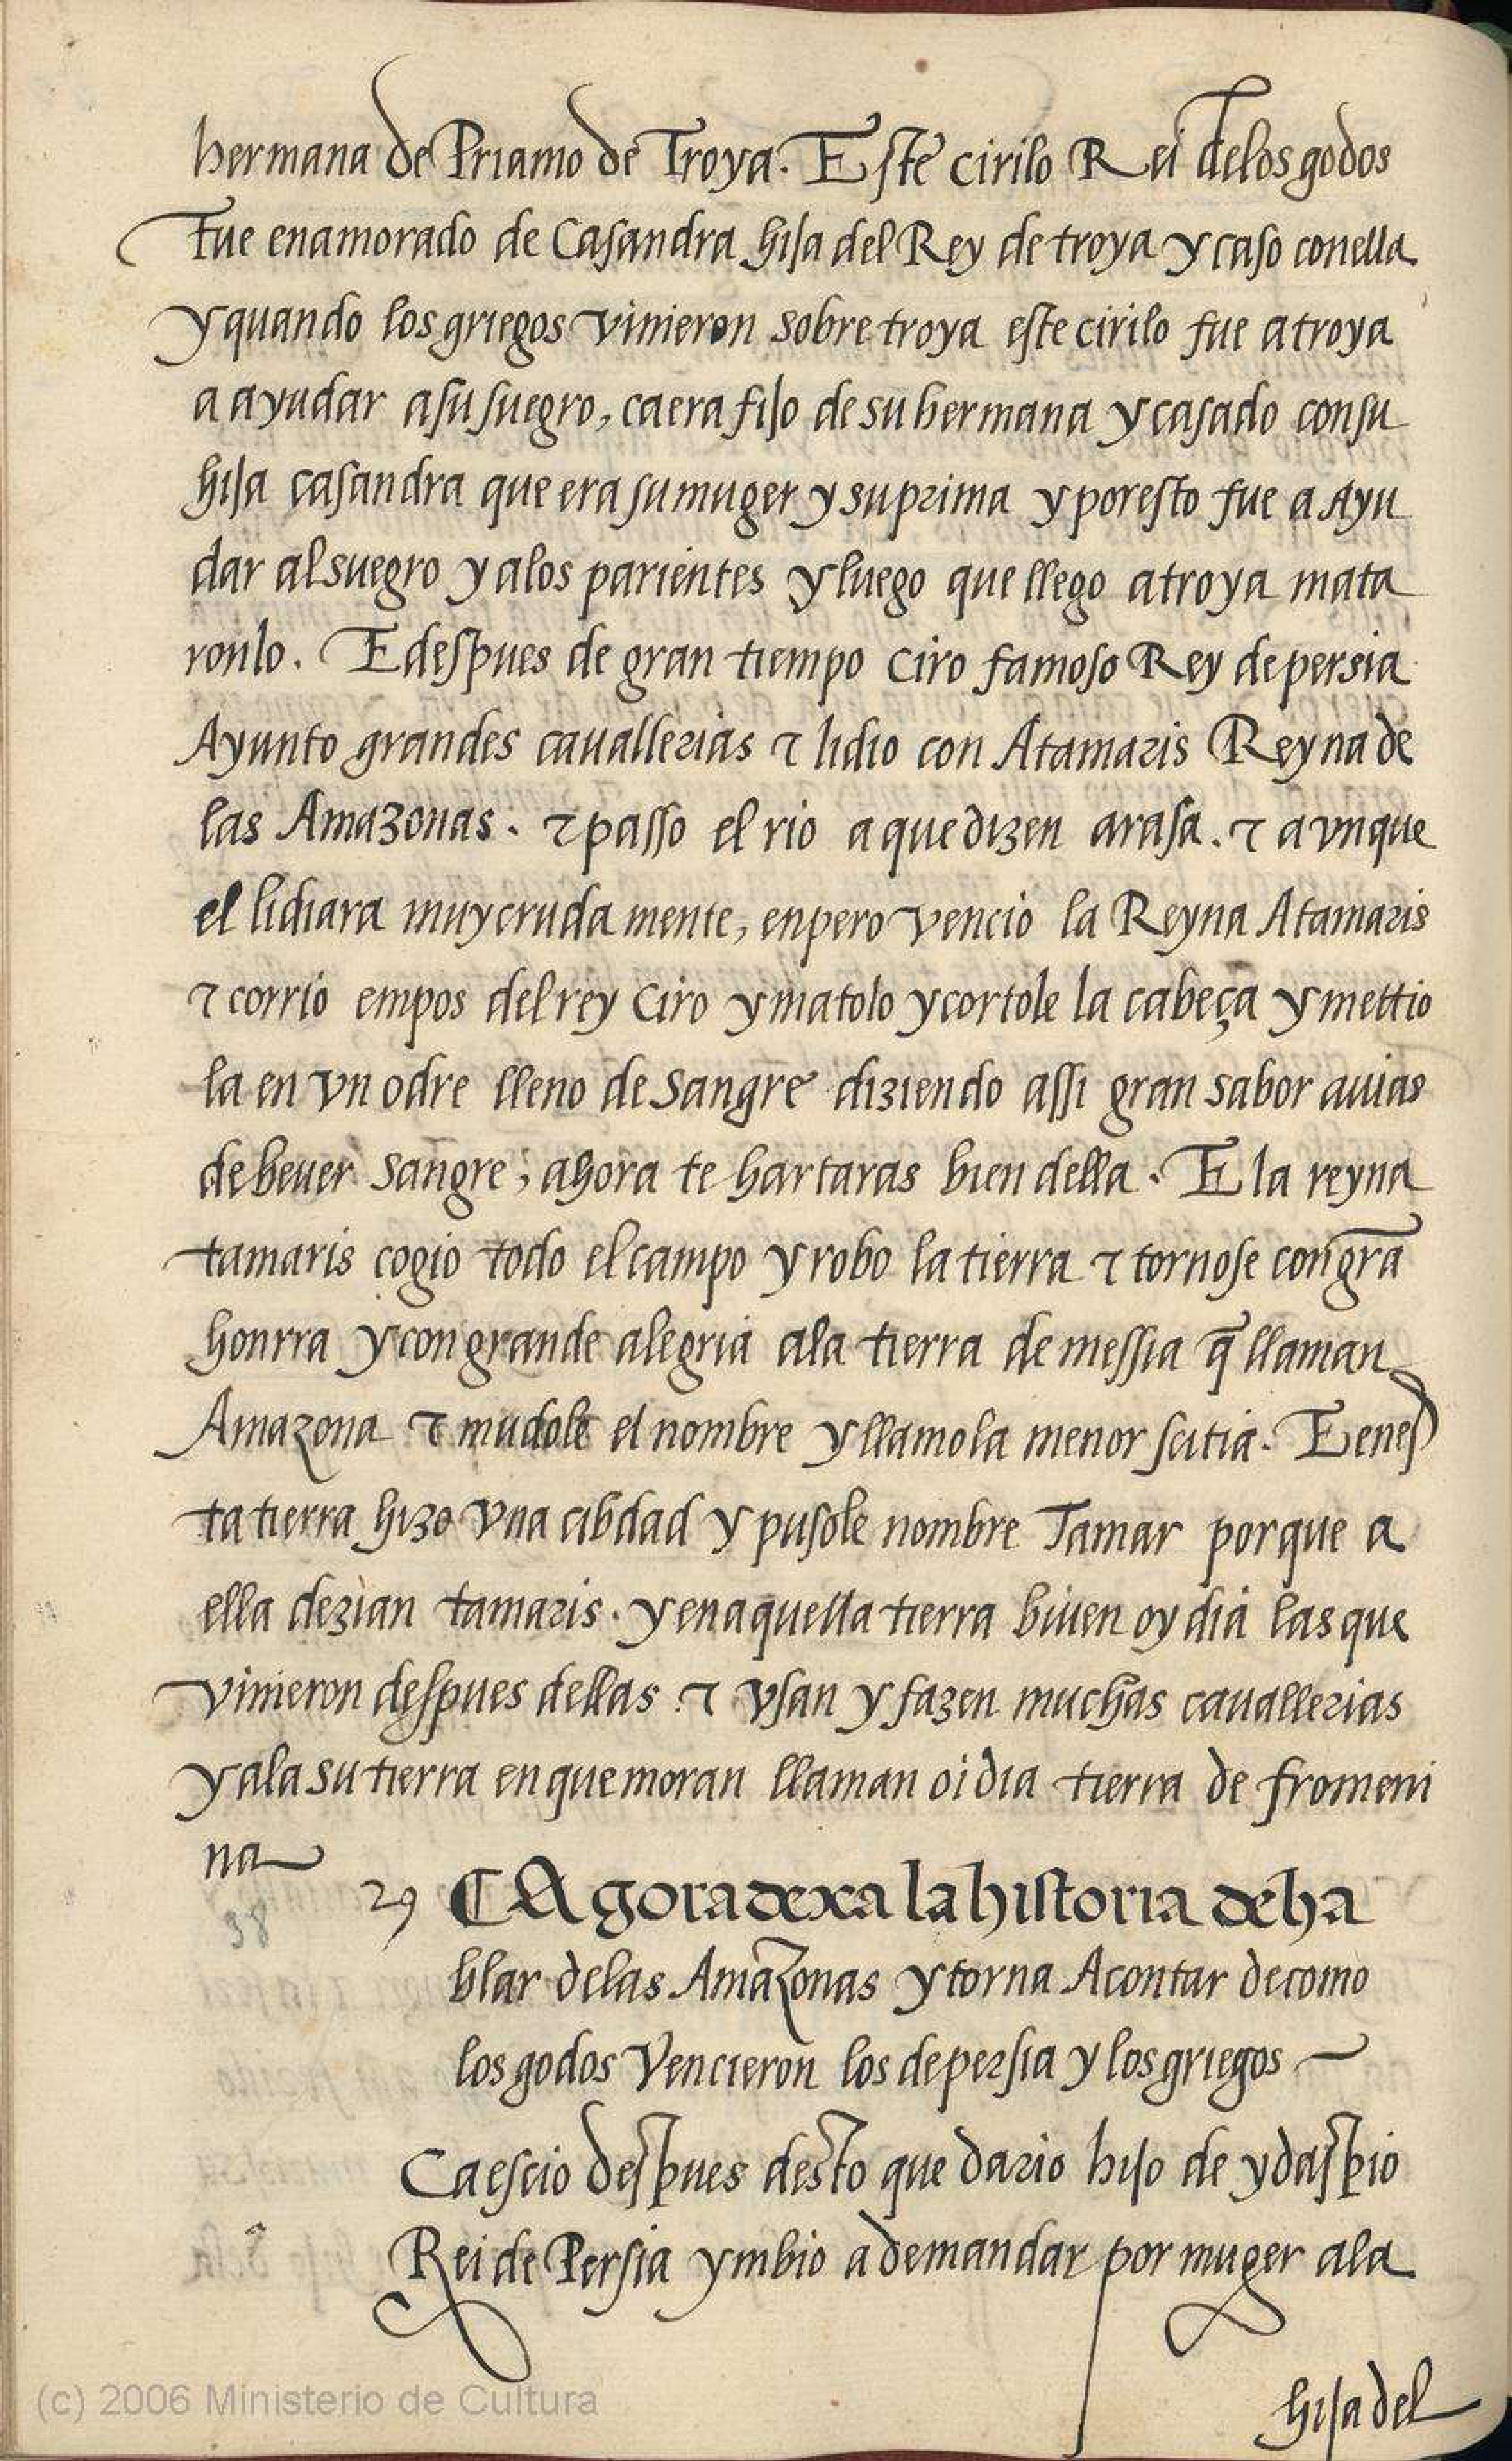 hermana de Priamo de Troya. Este cirilo Rei delos godos
fue enamorado de Casandra hija del Rey de troya y caso conella
y quando los griegos vinieron sobre troya este cirilo fue a troya
a ayudar a su suegro, ca era fijo de su hermana y casado con su
hija casandra que era su muger y su prima y por esto fue a Ayu
dar al suegro y alos parientes y luego que llego a troya mata
ronlo. E despues de gran tiempo Ciro famoso Rey de persia
Ayunto grandes cauallerias ⁊ lidio con Atamaris Reyna de
las Amazonas. ⁊ passo el rio a que dizen arasa. ⁊ avnque
el lidiara muy cruda mente, enpero vencio la Reyna Atamaris
⁊ corrio empos del rey Ciro y matolo y cortole la cabeça y mettio
la en vn odre lleno de sangre diziendo assi gran sabor auias
de beuer sangre; ahora te hartaras bien della. E la reyna
tamaris cogio todo el campo y robo la tierra ⁊ tornose con grā
honrra y con grande alegria ala tierra de messia q̄ llaman
Amazona ⁊ mudole el nombre y llamola menor scitia. E enes
ta tierra hizo vna cibdad y pusole nombre Tamar porque a
ella dezian tamaris. y en aquella tierra biuen oy dia las que
vinieron despues dellas. ⁊ vsan y fazen muchas cauallerias
y ala su tierra en que moran llaman oi dia tierra de fromeni
na
38
29 ¶ Agora dexa la historia de ha
blar delas Amazonas y torna A contar de como
los godos Vencieron los de persia y los griegos
Caescio despues desto que dario hijo de ydaspio
Rei de Persia ymbio a demandar por muger ala
hija del
(c) 2006 Ministerio de Cultura